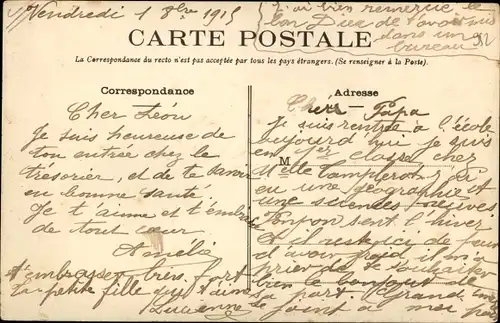 Vendredi 1 8bre 1915
J'ai bien remercié le
bon Dieu de t'avoir mis
dans un
bureau
CARTE POSTALE
La Correspondance du recto n'est pas acceptée par tous les pays étrangers. (Se renseigner à la Poste).
Correspondance
Cher Léon
Je suis heureuse de
ton entrée chez le
trésorier, et de te savoir
en bonne santé
Je t'aime et t'embrasse
de tout cœur
Amélie
t'embrasse bien fort
ta petite fille qui t'aime
Lucienne
Adresse
Chér Papa
Je suis rentrée à l'école
aujourd'hui je suis
en classe chez
M
Melle j'ai
eu une géographie et
une sciences
Ponpon sent l'hiver
il
d'avoir froid, il m'a
prier de te souhaiter
bien le bonjour de
sa part. Grand
se joint à moi pour